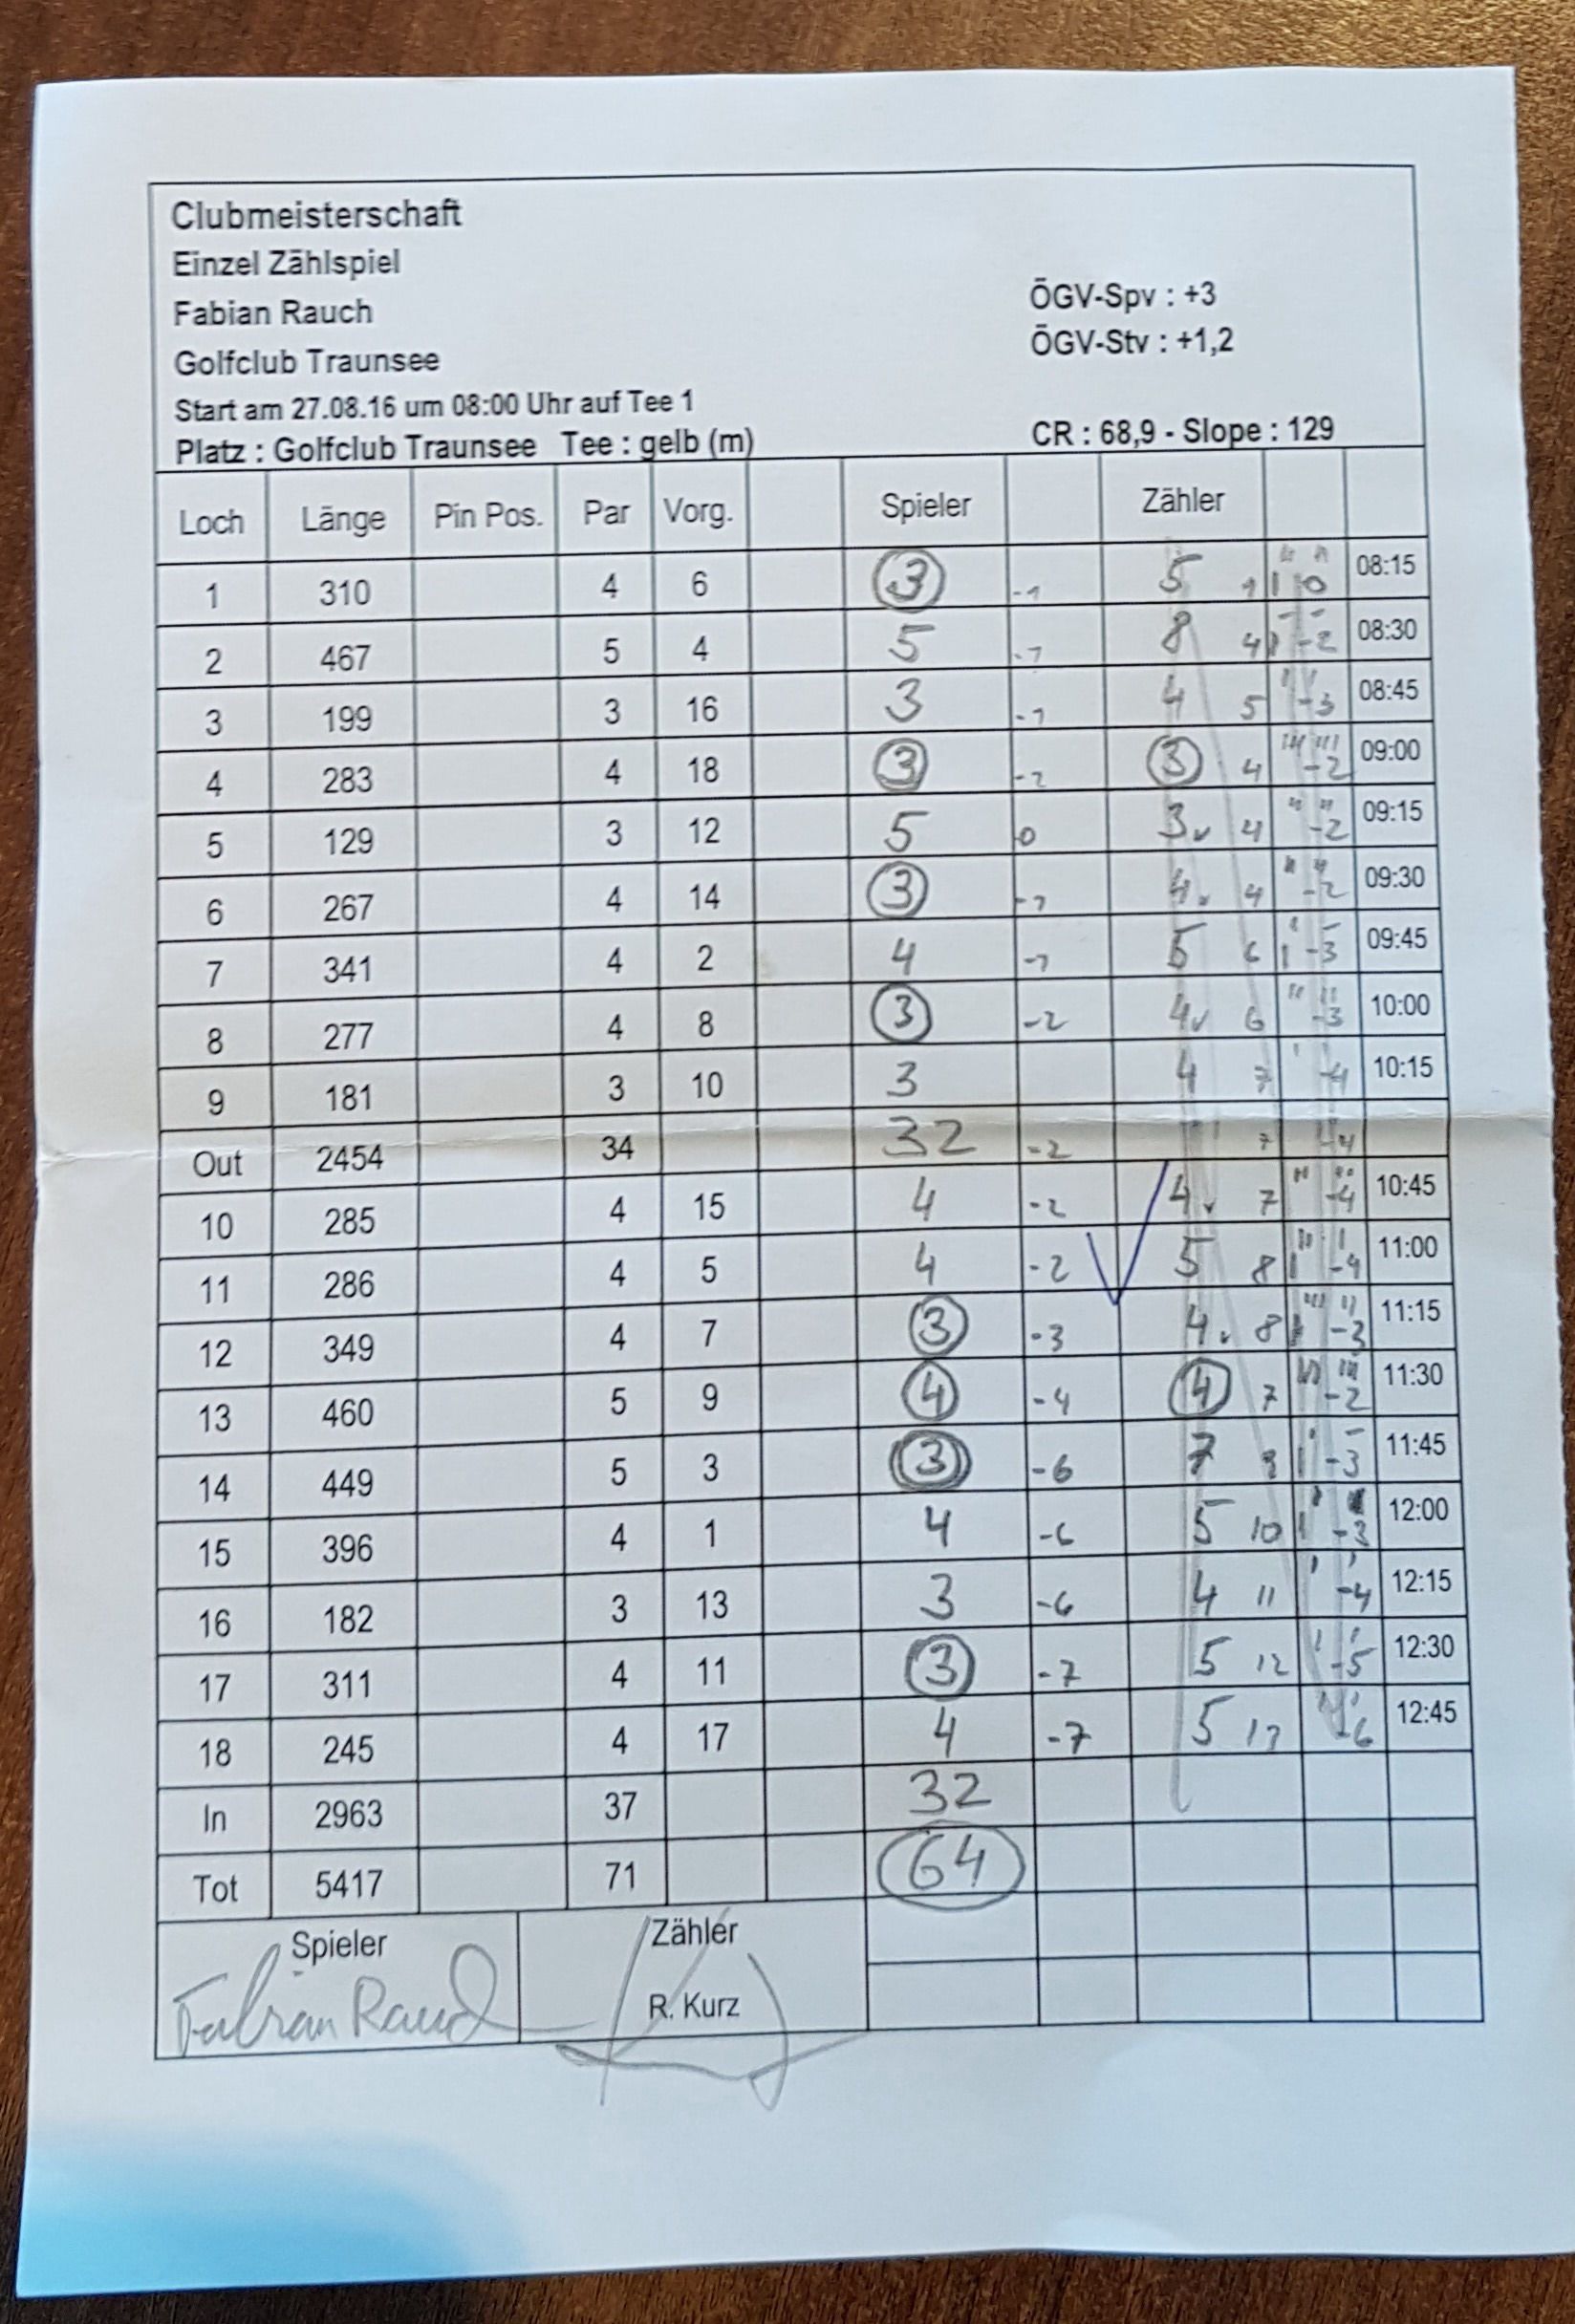 Clubmeisterschaft
Einzel Zählspiel
Fabian Rauch
ÖGV-Spv : +3
Golfclub Traunsee
ÖGV-Stv : +1,2
Start am 27.08.16 um 08:00 Uhr auf Tee 1
Platz : Golfclub Traunsee Tee : gelb (m) CR : 68,9 - Slope : 129
Loch Länge Pin Pos. Par Vorg. Spieler Zähler
1 310 4 6 3 -1 5 1 0 08:15
2 467 5 4 5 -1 8 4 -2 08:30
3 199 3 16 3 -1 4 5 -3 08:45
4 283 4 18 3 -2 3 4 -2 09:00
5 129 3 12 5 0 3 4 -2 09:15
6 267 4 14 3 -1 4 4 -2 09:30
7 341 4 2 4 -1 5 6 -3 09:45
8 277 4 8 3 -2 4 6 -3 10:00
9 181 3 10 3 4 7 -4 10:15
Out 2454 34 32 -2 7 -4
10 285 4 15 4 -2 4 7 -4 10:45
11 286 4 5 4 -2 5 8 -4 11:00
12 349 4 7 3 -3 4 8 -3 11:15
13 460 5 9 4 -4 4 7 -2 11:30
14 449 5 3 3 -6 7 -3 11:45
15 396 4 1 4 -6 5 10 -3 12:00
16 182 3 13 3 -6 4 11 -4 12:15
17 311 4 11 3 -7 5 12 -5 12:30
18 245 4 17 4 -7 5 13 -6 12:45
In 2963 37 32
Tot 5417 71 64
Spieler Zähler
Fabian Rauch R. Kurz